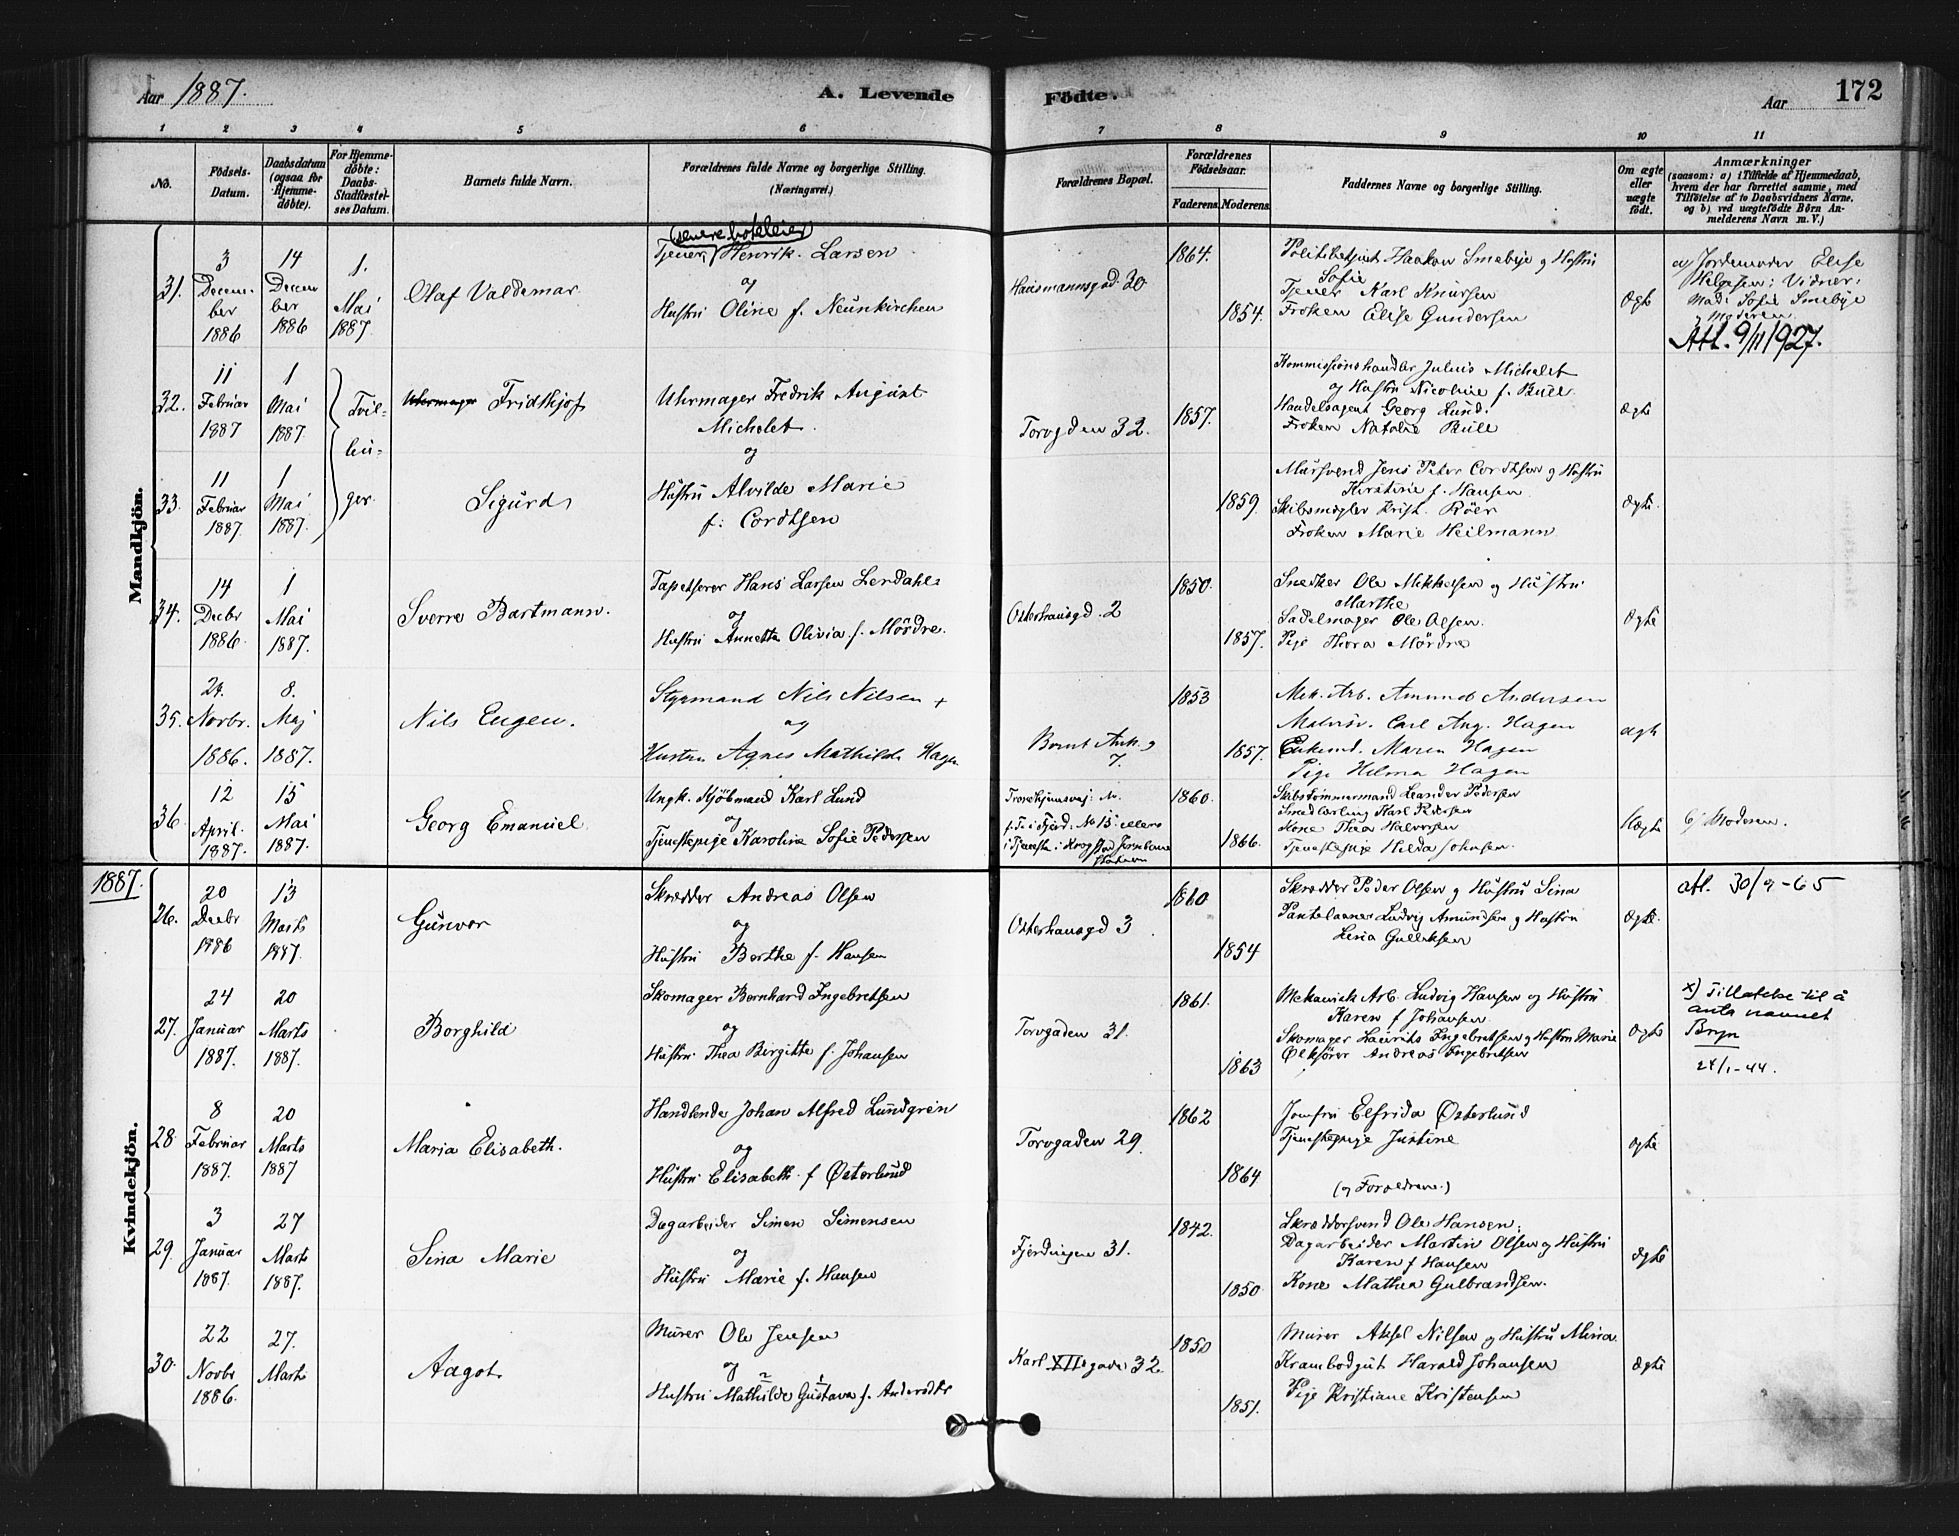 Aar 1887.
A. Levende Födte.
Aar
172
1 2 3 4 5 6 7 8 9 10 11
No.
Födsels-Datum.
Daabsdatum (ogsaa for Hjemme-döbte).
For Hjemme-döbte: Daabs-Stadfæstel-ses Datum.
Barnets fulde Navn.
Forældrenes fulde Navne og borgerlige Stilling. (Næringsvei.)
Forældrenes Bopæl.
Forældrenes Födselsaar.
Faderens. Moderens.
Faddernes Navne og borgerlige Stilling.
Om ægte eller uægte födt.
Anmærkninger
(saasom: a) i Tilfælde af Hjemmedaab, hvem der har forrettet samme, med Tilföielse af to Daabsvidners Navne, og b) ved uægtefödte Börn An-melderens Navn m. V.)
Mandkjön.
31.
3 Decem-ber 1886
14 Decem ber 1886
1. Mai 1887.
Olaf Valdemar
senere hoteleier
Tjener Henrik Larsen
og
Hustru Oline f. Neunkirchen
Hausmannsgd 30
1864.
1854.
Politibetjent Haakon Smebye og Hustru
Sofie
Tjener Karl Knudsen
Frøken Elise Gundersen
Ægte
a) Jordemoder Elise
Helgesen; Vidner:
Mad. Sofie Smebye
og Moderen
Att. 9/11 1927.
32.
11 Februar 1887
1 Mai 1887.
Tvil-
lin-
ger.
Uhrmager Fridthjof
Uhrmager Fredrik August
Michelet.
og
Torvgaden 32.
1857.
Kommissionshandler Julius Michelet
og Hustru Nicoline f. Bull.
Handelsagent Georg Lund.
Frøken Natalie Bull
Ægte
33.
11 Februar 1887.
1 Mai 1887.
Sigurd
Hustru Alvilde Marie
f: Cordtsen
1859.
Mursvend Jens Peter Cordtsen og Hustru
Kirstine f. Hansen
Skibsmægler Krist. Röer
Frøken Marie Heilmann
Ægte.
34.
14 Decbr 1886.
1 Mai 1887.
Sverre Bartmann.
Tapetserer Hans Larsen Lerdahl
og
Hustru Annette Olivia f. Mördre.
Osterhausgd. 2
1850.
1857.
Snedker Ole Mikkelsen og Hustru
Marthe
Sadelmager Ole Olsen.
Pige Thora Mördre
Ægte
35.
24. Novbr. 1886.
8. Maj 1887.
Nils Eugen.
Styrmand Nils Nilsen +
og
Hustru Agnes Mathilde Hagen
Bernt Ank. g
7.
1853
1857.
Mek. Arb. Amund Andersen
Malersv. Carl Aug. Hagen
Enkemd. Maren Hagen
Pige Helma Hagen
ægte
36.
12 April. 1887.
15 Mai 1887.
Georg Emanuel
Ungk. Kjöbmand Karl Lund
og
Tjenestepige Karoline Sofie Pedersen
Trondhjemsvej: No.
1860.
1866.
Skibstömmermand Leander Pedersen
Smedlærling Karl Pedersen
Kone Thea Halvorsen
Tjenestepige Hilda Johnsen.
Uægte
b) Moderen.
1887.
Kvindekjön.
26.
20 Decbr 1886
13 Marts 1887.
Gunvor
Skrædder Andreas Olsen
og
Hustru Berthe f. Hansen
Osterhausgd 3
1860
1854
Skrædder Peder Olsen og Hustru Lina
Pantelaaner Ludvig Amundsen og Hustru
Lina Gulliksen
Ægte.
att. 30/9-65
27.
24 Januar 1887.
20 Marts 1887.
Borghild
Skomager Bernhard Ingebretsen
og
Hustru Thea Birgitte f. Johansen
Torvgaden 31.
1861.
1863
Mekanisk Arb. Ludvig Hansen og Hustru
Karen f Johansen
Skomager Laurits Ingebretsen og Hustru Marie
Ølkjører Andreas Ingebretsen
Ægte
x) Tillatelse til å
anta navnet
Bryn
24/1-44.
28.
8 Februar 1887.
20 Marts 1887
Maria Elisabeth.
Handlende Johan Alfred Lundgren
og
Hustru Elisabeth f Østerlund
Torvgaden 29.
1862
1864
Jomfru Elfrida Østerlund
Tjenestepige Justine
(og Forældrene.)
ægte
29.
3 Januar 1887.
27 Marts 1887.
Sina Marie
Dagarbeider Simen Simensen
og
Hustru Marie f. Hansen
Fjerdingen 31.
1842.
1850.
Skræddersvend Ole Hansen;
Dagarbeider Martin Olsen og Hustru
Karen f Hansen
Kone Mathea Gulbrandsen.
ægte
30.
22 Novbr 1886.
27. Marts
Aagot
Murer Ole Jensen
og
2 1
Hustru Mathilde Gustava f. Andersdtr
Karl XIIsgade 32.
1850
1851.
Murer Aksel Nilsen og Hustru Mina
Krambodgut Harald Johansen
Pige Kristiane Kristensen
Ægte